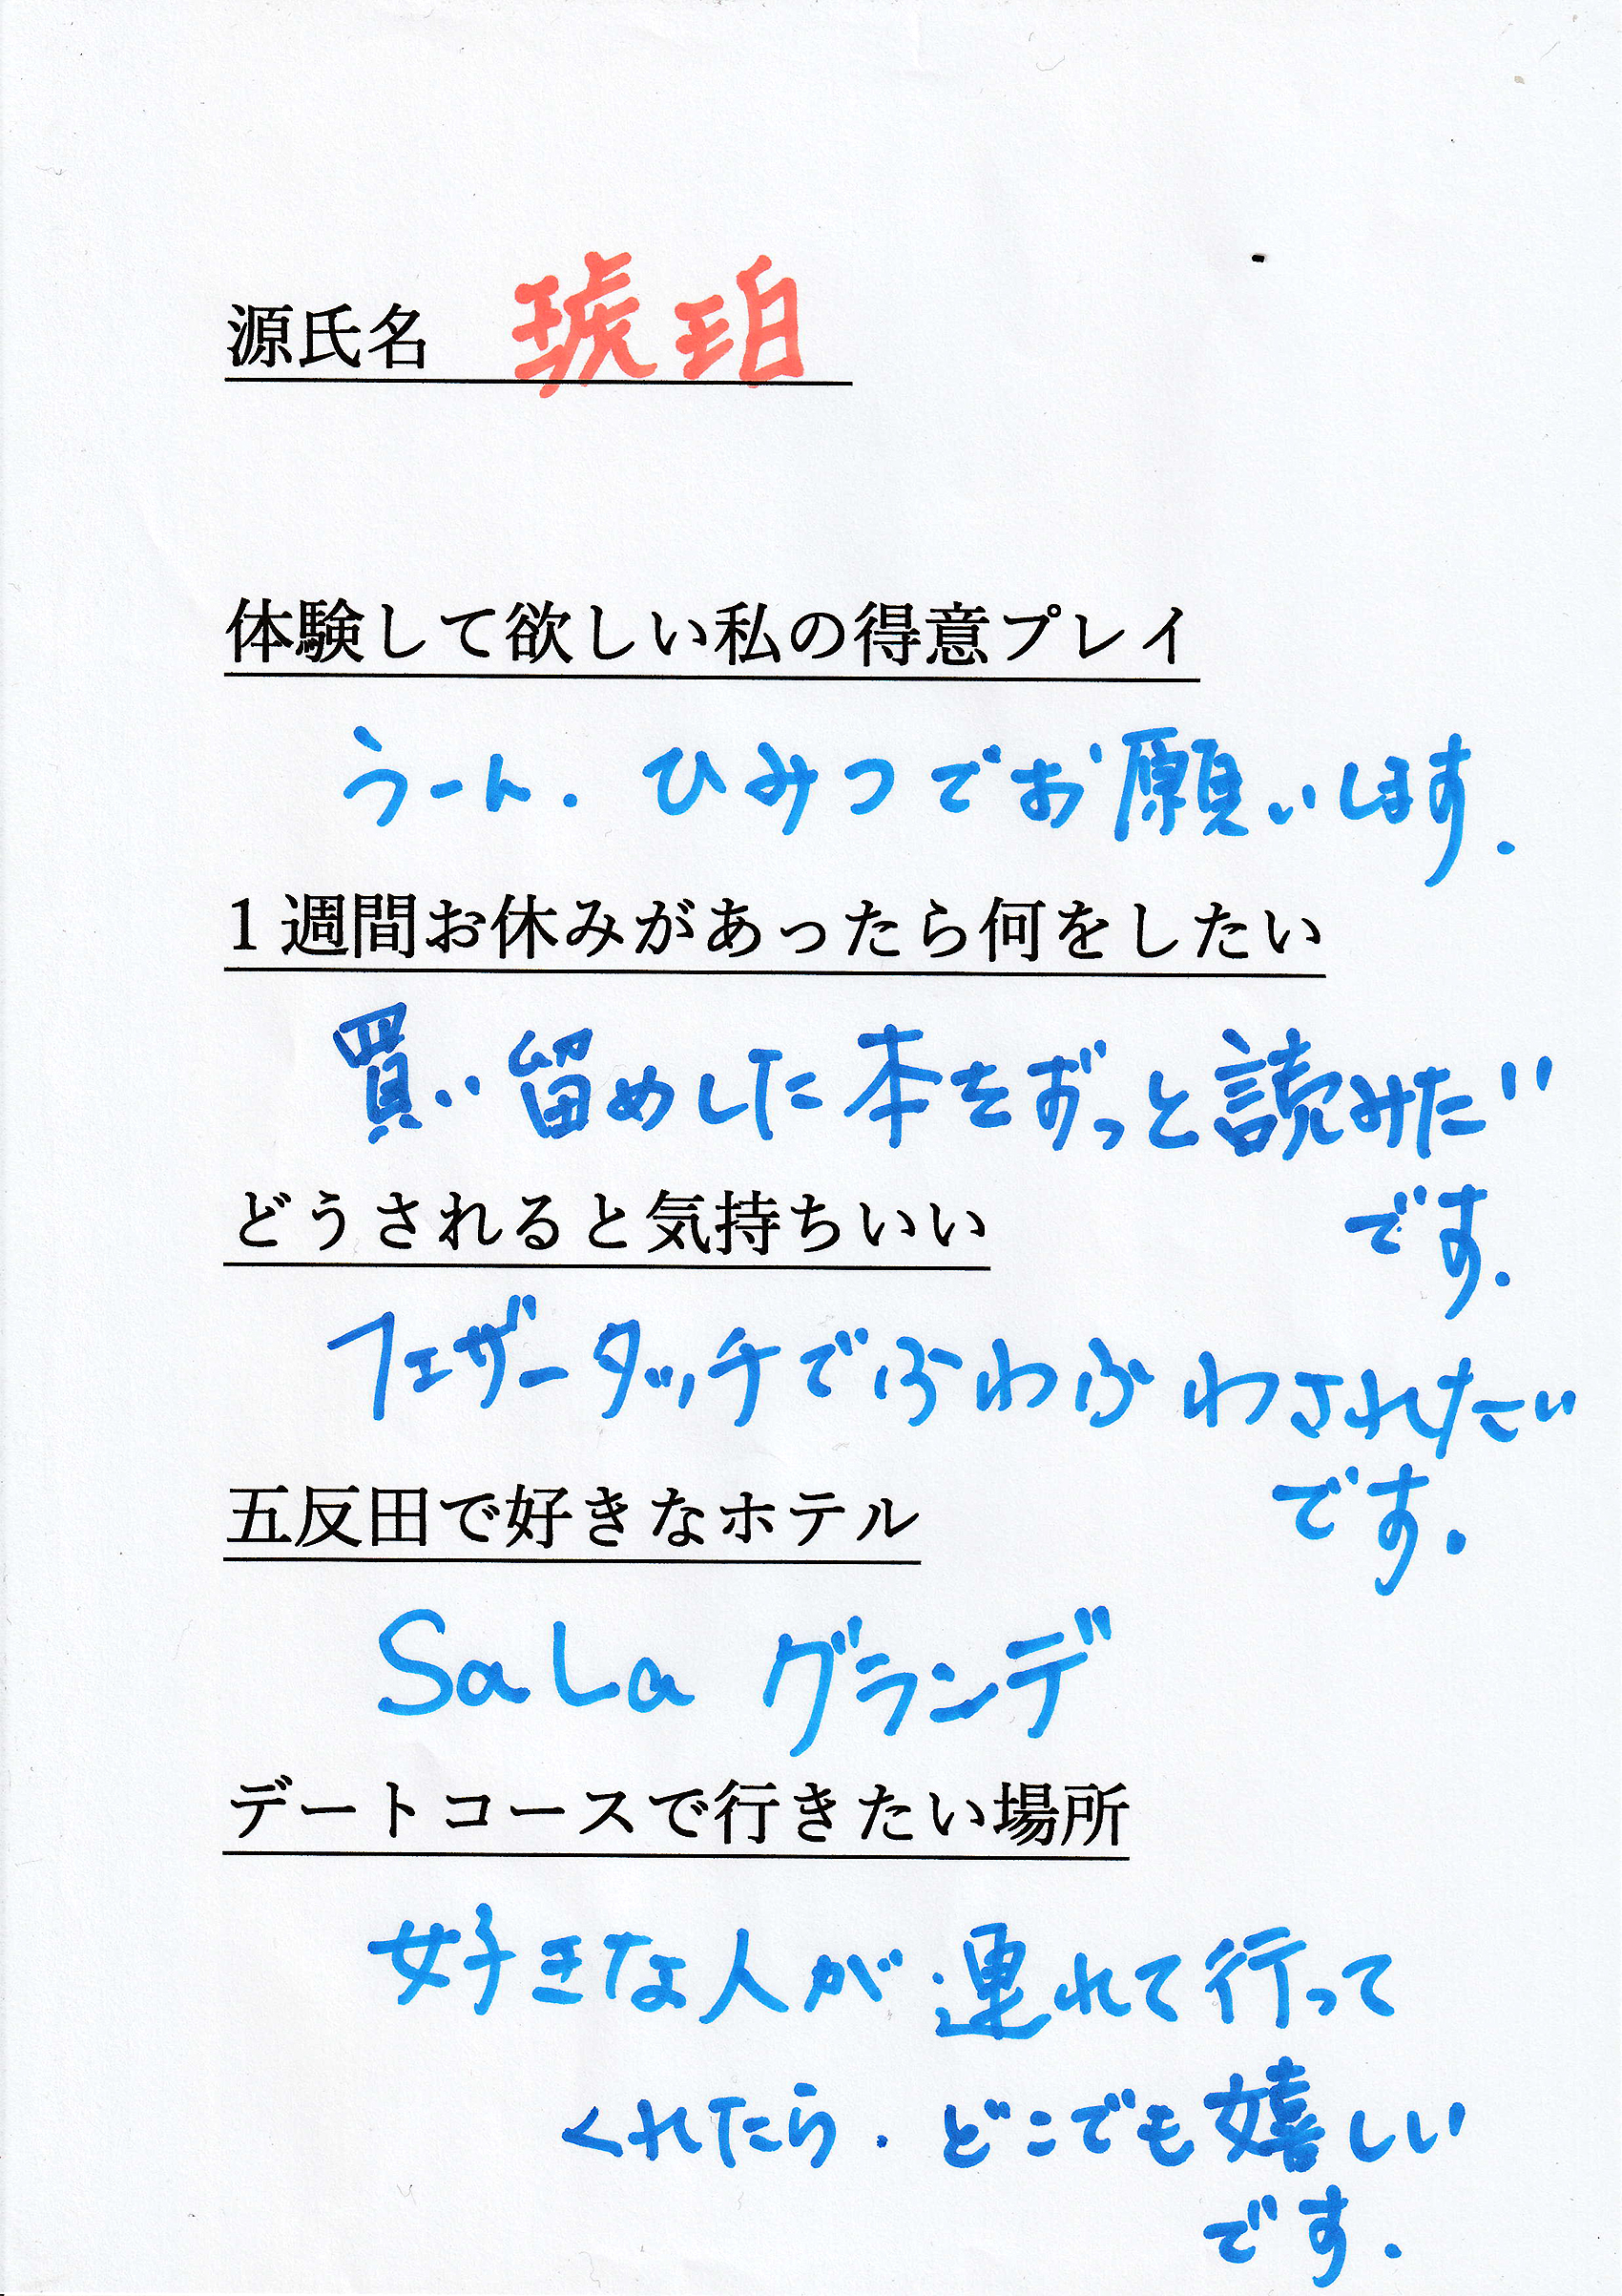 源氏名 琥珀
体験して欲しい私の得意プレイ
うーん. ひみつでお願いします.
1 週間お休みがあったら何をしたい
買い留めした本をずっと読みたい
です.
どうされると気持ちいい
フェザータッチでふわふわされたい
です.
五反田で好きなホテル
SaLa グランデ
デートコースで行きたい場所
好きな人が連れて行って
くれたら. どこでも嬉しい
です.